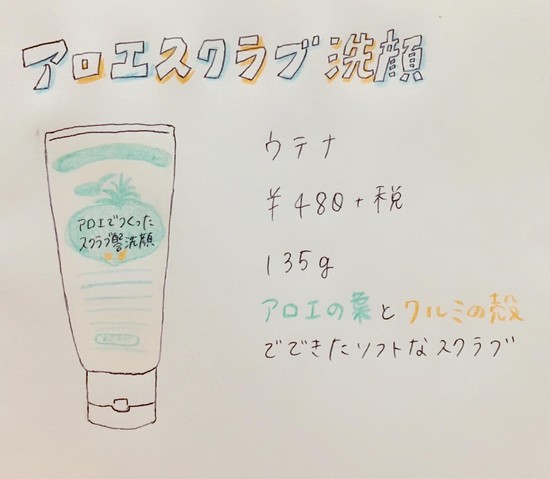 アロエスクラブ洗顔
ウテナ
¥480+税
135g
アロエの葉とクルミの殻
でできたソフトなスクラブ
アロエでつくった
スクラブ配合洗顔